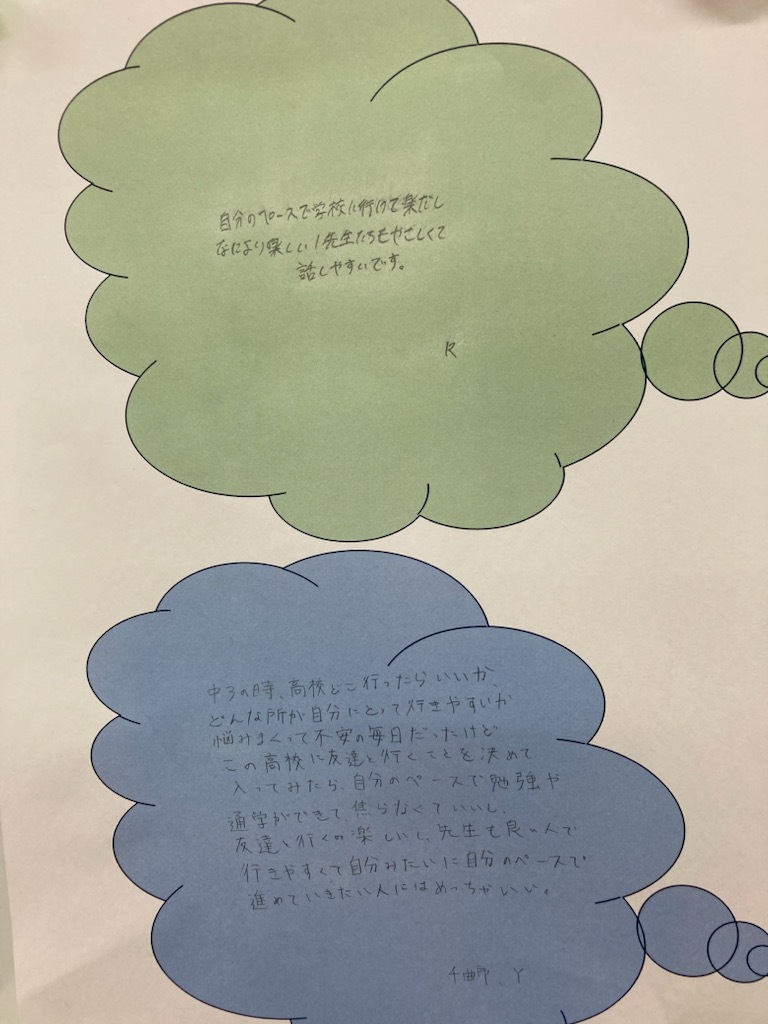 自分のペースで学校に行けて楽だし
なにより楽しい!先生たちもやさしくて
話しやすいです。
R
中3の時、高校どこ行ったらいいか、
どんな所が自分にとって行きやすいか
悩みまくって不安の毎日だったけど
この高校に友達と行くことを決めて
入ってみたら、自分のペースで勉強や
通学ができて、焦らなくていいし、
友達と行くの楽しいし、先生も良い人で
行きやすくて自分みたいに自分のペースで
進めていきたい人にはめっちゃいい。
千曲市、Y